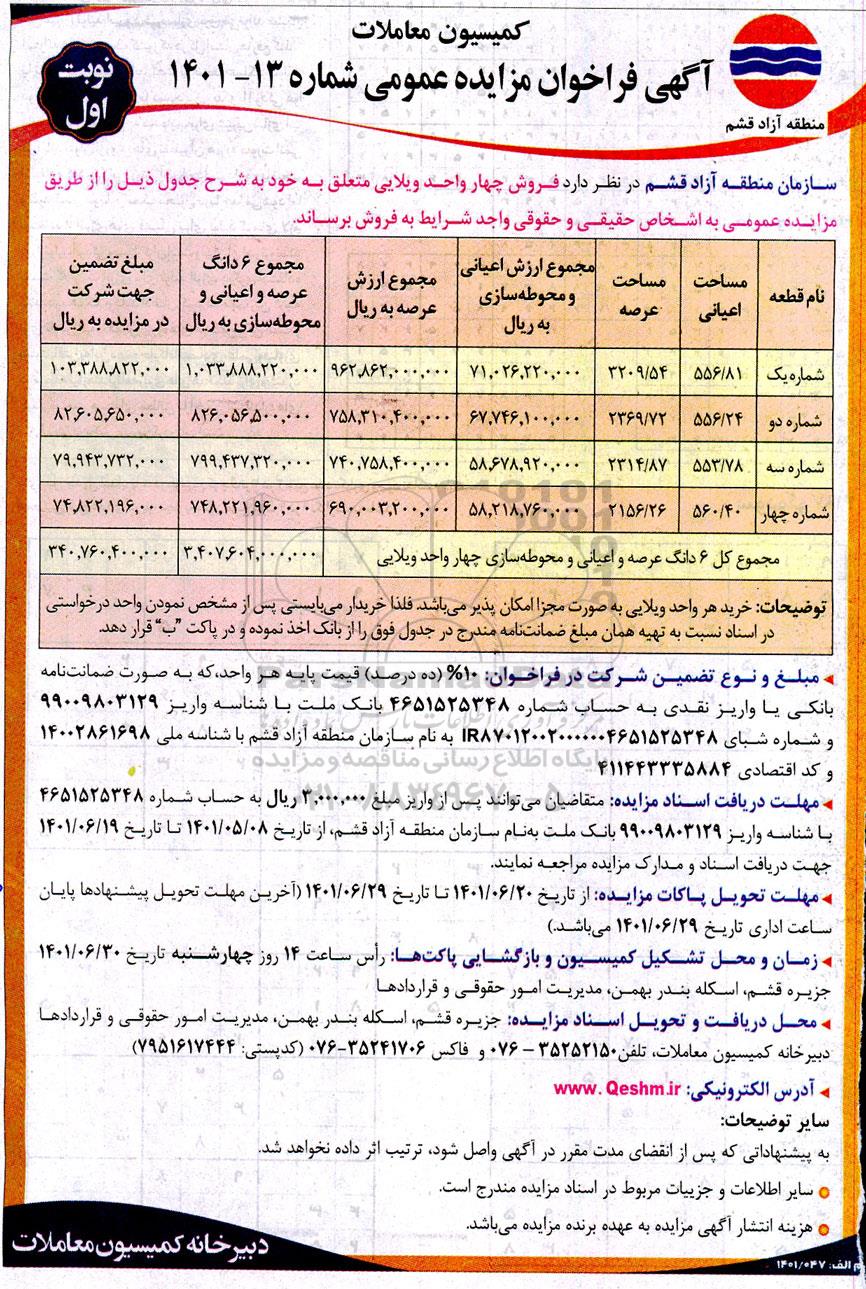 کمیسیون معاملات
آگهی فراخوان مزایده عمومی شماره ۱۳- ۱۴۰۱
نوبت
اول
منطقه آزاد قشم
سازمان منطقه آزاد قشم در نظر دارد فروش چهار واحد ویلایی متعلق به خود به شرح جدول ذیل را از طریق
مزایده عمومی به اشخاص حقیقی و حقوقی واجد شرایط به فروش برساند.
نام قطعه | مساحت اعیانی | مساحت عرصه | مجموع ارزش اعیانی و محوطه‌سازی به ریال | مجموع ارزش عرصه به ریال | مجموع ۶ دانگ عرصه و اعیانی و محوطه‌سازی به ریال | مبلغ تضمین جهت شرکت در مزایده به ریال
شماره یک | ۵۵۶/۸۱ | ۳۲۰۹/۵۴ | ۷۱,۰۲۶,۲۲۰,۰۰۰ | ۹۶۲,۸۶۲,۰۰۰,۰۰۰ | ۱,۰۳۳,۸۸۸,۲۲۰,۰۰۰ | ۱۰۳,۳۸۸,۸۲۲,۰۰۰
شماره دو | ۵۵۶/۲۴ | ۲۳۶۹/۷۲ | ۶۷,۷۴۶,۱۰۰,۰۰۰ | ۷۵۸,۳۱۰,۴۰۰,۰۰۰ | ۸۲۶,۰۵۶,۵۰۰,۰۰۰ | ۸۲,۶۰۵,۶۵۰,۰۰۰
شماره سه | ۵۵۳/۷۸ | ۲۳۱۴/۸۷ | ۵۸,۶۷۸,۹۲۰,۰۰۰ | ۷۴۰,۷۵۸,۴۰۰,۰۰۰ | ۷۹۹,۴۳۷,۳۲۰,۰۰۰ | ۷۹,۹۴۳,۷۳۲,۰۰۰
شماره چهار | ۵۶۰/۴۰ | ۲۱۵۶/۲۶ | ۵۸,۲۱۸,۷۶۰,۰۰۰ | ۶۹۰,۰۰۳,۲۰۰,۰۰۰ | ۷۴۸,۲۲۱,۹۶۰,۰۰۰ | ۷۴,۸۲۲,۱۹۶,۰۰۰
مجموع کل ۶ دانگ عرصه و اعیانی و محوطه‌سازی چهار واحد ویلایی | ۳,۴۰۷,۶۰۴,۰۰۰,۰۰۰ | ۳۴۰,۷۶۰,۴۰۰,۰۰۰
توضیحات: خرید هر واحد ویلایی به صورت مجزا امکان پذیر می‌باشد. فلذا خریدار می‌بایستی پس از مشخص نمودن واحد درخواستی
در اسناد نسبت به تهیه همان مبلغ ضمانت‌نامه مندرج در جدول فوق را از بانک اخذ نموده و در پاکت "ب" قرار دهد.
مبلغ و نوع تضمین شرکت در فراخوان: ۱۰% (ده درصد) قیمت پایه هر واحد، که به صورت ضمانت‌نامه
بانکی یا واریز نقدی به حساب شماره ۴۶۵۱۵۲۵۳۴۸ بانک ملت با شناسه واریز ۹۹۰۰۹۸۰۳۱۲۹
و شماره شبای IR۸۷۰۱۲۰۰۲۰۰۰۰۰۰۴۶۵۱۵۲۵۳۴۸ به نام سازمان منطقه آزاد قشم با شناسه ملی ۱۴۰۰۲۸۶۱۶۹۸
و کد اقتصادی ۴۱۱۴۴۳۳۳۵۸۸۴
مهلت دریافت اسناد مزایده: متقاضیان می‌توانند پس از واریز مبلغ ۳,۰۰۰,۰۰۰ ریال به حساب شماره ۴۶۵۱۵۲۵۳۴۸
با شناسه واریز ۹۹۰۰۹۸۰۳۱۲۹ بانک ملت به‌نام سازمان منطقه آزاد قشم، از تاریخ ۱۴۰۱/۰۵/۰۸ تا تاریخ ۱۴۰۱/۰۶/۱۹
جهت دریافت اسناد و مدارک مزایده مراجعه نمایند.
مهلت تحویل پاکات مزایده: از تاریخ ۱۴۰۱/۰۶/۲۰ تا تاریخ ۱۴۰۱/۰۶/۲۹ (آخرین مهلت تحویل پیشنهادها پایان
ساعت اداری تاریخ ۱۴۰۱/۰۶/۲۹ می‌باشد.)
زمان و محل تشکیل کمیسیون و بازگشایی پاکت‌ها: رأس ساعت ۱۴ روز چهارشنبه تاریخ ۱۴۰۱/۰۶/۳۰
جزیره قشم، اسکله بندر بهمن، مدیریت امور حقوقی و قراردادها
محل دریافت و تحویل اسناد مزایده: جزیره قشم، اسکله بندر بهمن، مدیریت امور حقوقی و قراردادها
دبیرخانه کمیسیون معاملات، تلفن ۳۵۲۵۲۱۵۰ - ۰۷۶ و فاکس ۳۵۲۴۱۷۰۶-۰۷۶ (کدپستی: ۷۹۵۱۶۱۷۴۴۴)
آدرس الکترونیکی: www.Qeshm.ir
سایر توضیحات:
به پیشنهاداتی که پس از انقضای مدت مقرر در آگهی واصل شود، ترتیب اثر داده نخواهد شد.
سایر اطلاعات و جزییات مربوط در اسناد مزایده مندرج است.
هزینه انتشار آگهی مزایده به عهده برنده مزایده می‌باشد.
دبیرخانه کمیسیون معاملات
م الف: ۱۴۰۱/۰۴۷
ParsNamadData
پایگاه اطلاع رسانی مناقصه و مزایده